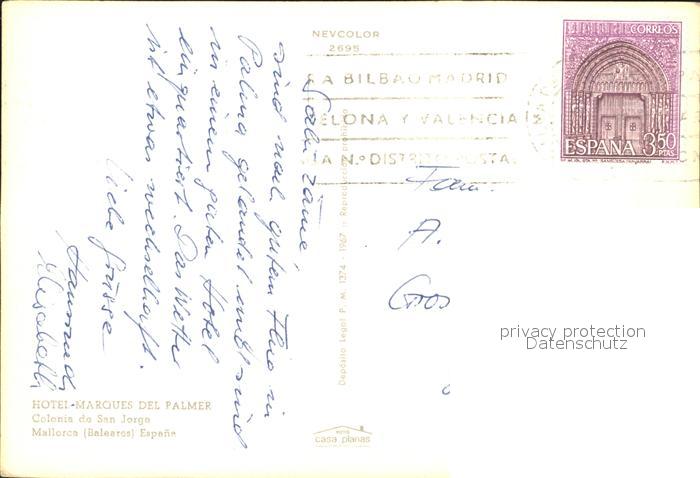 NEVCOLOR
2695
RA BILBAO MADRID
ELONA Y VALENCIA
A N.º DISTRITO POSTAL
CORREOS
ESPAÑA 3,50
PTAS
sind nach gutem Flug in
Palma gelandet und sind
in einem guten Hotel
einquartiert. Das Wetter
ist etwas wechselhaft.
Liebe Grüsse
Elisabeth
Fam.
A.
Gros
Depósito Legal P. M. 1274 - 1967 Reproducción prohibida
privacy protection
Datenschutz
HOTEL MARQUES DEL PALMER
Colonia de San Jorge
Mallorca (Baleares) España
casa planas